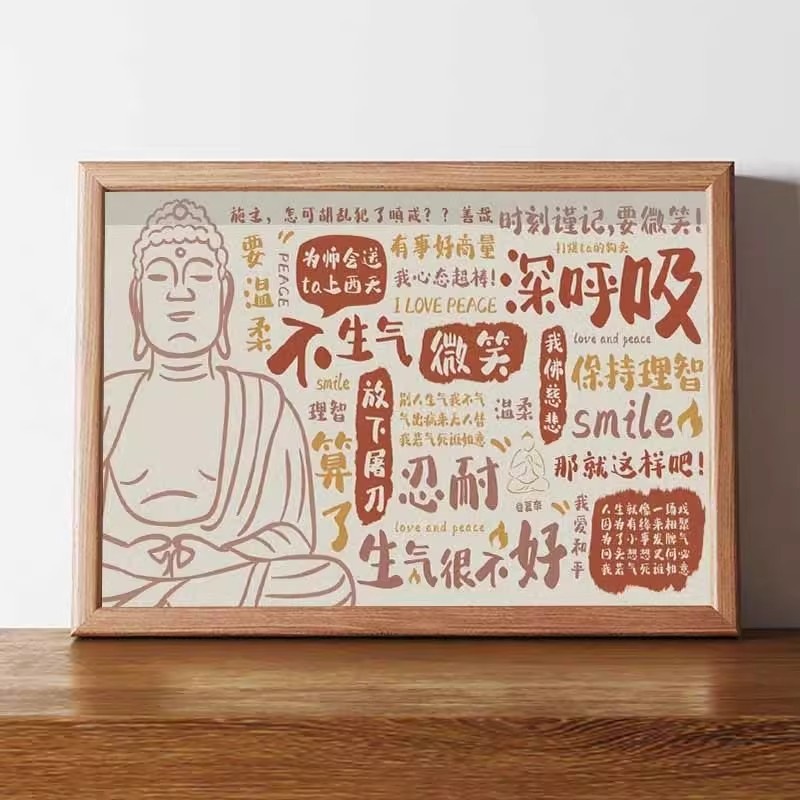 施主，怎可胡乱犯了嗔戒？？善哉
时刻谨记,要微笑!
要温柔
PEACE
为师会送
ta上西天
有事好商量
我心态超棒!
I LOVE PEACE
打爆ta的狗头
深呼吸
love and peace
不生气
微笑
我佛慈悲
保持理智
smile
理智
放下屠刀
别人生气我不气
气出病来无人替
我若气死谁如意
温柔
smile
算了
忍耐
那就这样吧!
love and peace
生气很不好
我爱和平
人生就像一场戏
因为有缘来相聚
为了小事发脾气
回头想想又何必
我若气死谁如意